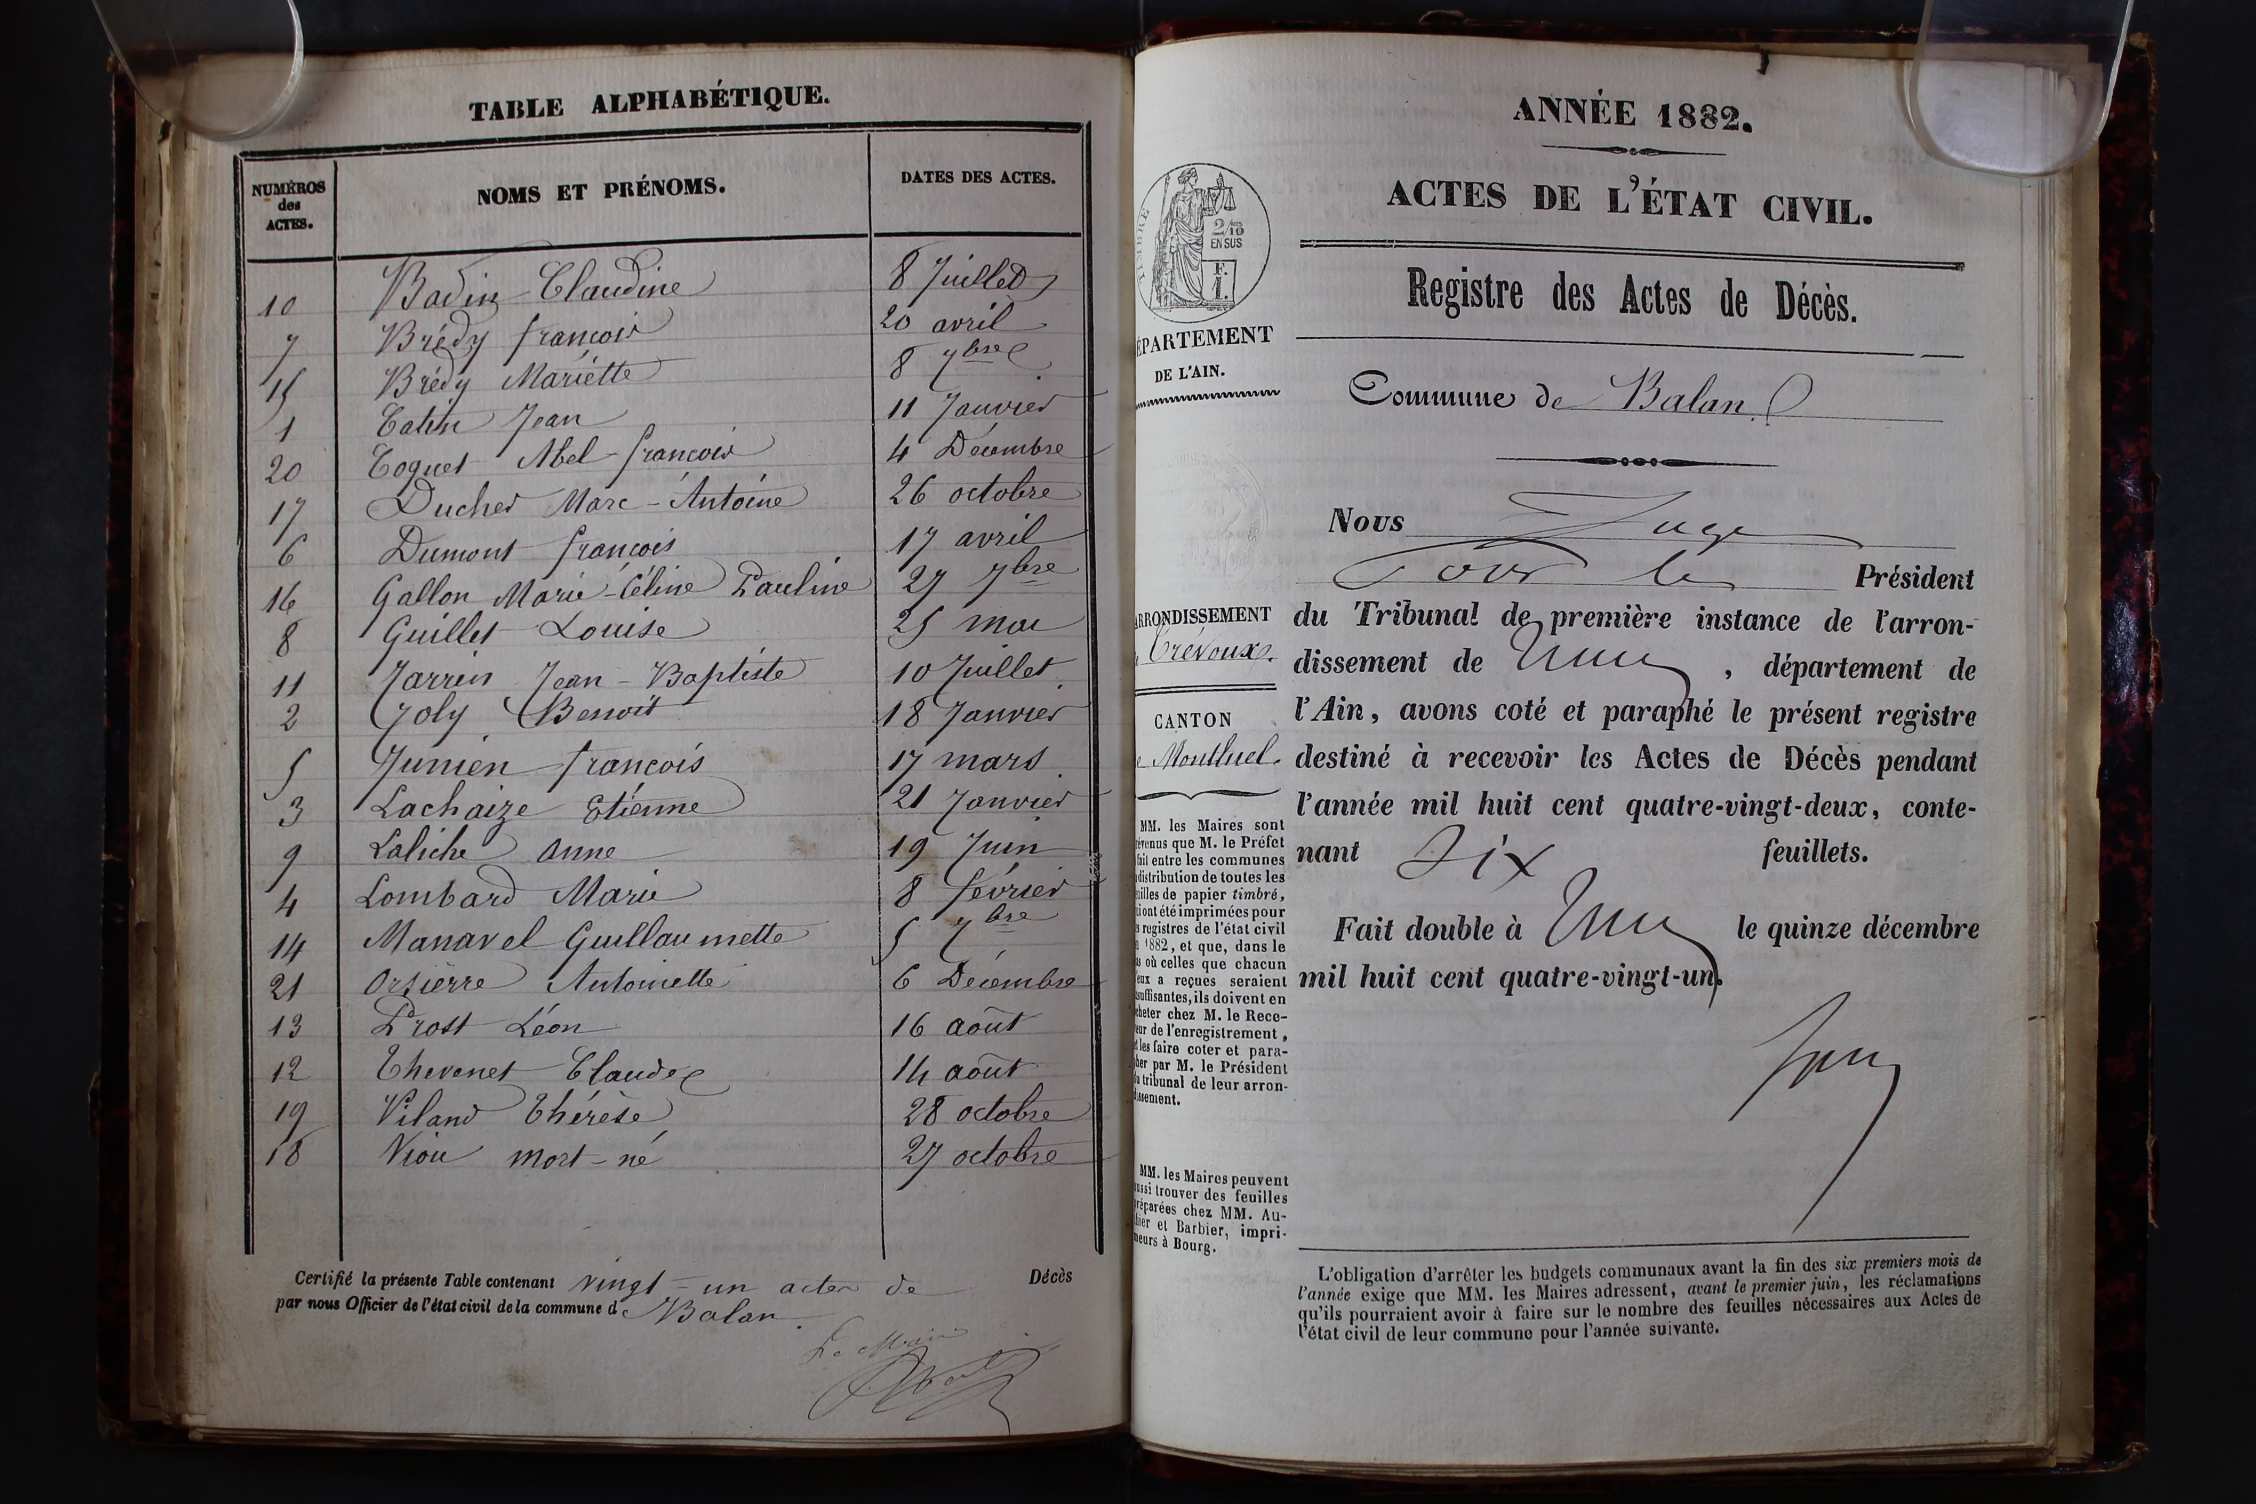 TABLE ALPHABÉTIQUE.
NUMÉROS des ACTES. NOMS ET PRÉNOMS. DATES DES ACTES.
10 Badin Claudine 8 Juillet
7 Brédy françois 20 avril
15 Brédy Mariette 8 7bre
1 Catin Jean 11 Janvier
20 Coquet Abel françois 4 Décembre
17 Ducher Marc-Antoine 26 octobre
6 Dumont françois 17 avril
16 Gallon Marie-Céline Pauline 27 7bre
8 Guillet Louise 25 mai
11 Jarrin Jean-Baptiste 10 Juillet
2 Joly Benoit 18 Janvier
5 Junien françois 17 mars
3 Lachaize Etienne 21 Janvier
9 Laliche anne 19 Juin
4 Lombard Marie 8 février
14 Manavel Guillaumette 5 7bre
21 Orsierre Antoinette 6 Décembre
13 Prost Léon 16 août
12 Thevenet Claude 14 août
19 Viland Thérèse 28 octobre
18 Viou mort-né 27 octobre
Certifié la présente Table contenant vingt-un actes de Décès
par nous Officier de l'état civil de la commune de Balan.
Le Maire
ANNÉE 1882.
ACTES DE L'ÉTAT CIVIL.
Registre des Actes de Décès.
TIMBRE
2/10
EN SUS
F.
1.
ÉPARTEMENT
DE L'AIN.
Commune de Balan
Nous Juge
Pour le Président
du Tribunal de première instance de l'arron-
dissement de , département de
l'Ain, avons coté et paraphé le présent registre
destiné à recevoir les Actes de Décès pendant
l'année mil huit cent quatre-vingt-deux, conte-
nant six feuillets.
Fait double à le quinze décembre
mil huit cent quatre-vingt-un.
ARRONDISSEMENT
Trévoux.
CANTON
Montluel.
MM. les Maires sont
évenus que M. le Préfet
fait entre les communes
distribution de toutes les
uilles de papier timbré,
ui ont été imprimées pour
s registres de l'état civil
1882, et que, dans le
as où celles que chacun
eux a reçues seraient
suffisantes, ils doivent en
cheter chez M. le Rece-
eur de l'enregistrement,
t les faire coter et para-
her par M. le Président
u tribunal de leur arron-
issement.
MM. les Maires peuvent
ussi trouver des feuilles
réparées chez MM. Au-
nier et Barbier, impri-
meurs à Bourg.
L'obligation d'arrêter les budgets communaux avant la fin des six premiers mois de
l'année exige que MM. les Maires adressent, avant le premier juin, les réclamations
qu'ils pourraient avoir à faire sur le nombre des feuilles nécessaires aux Actes de
l'état civil de leur commune pour l'année suivante.